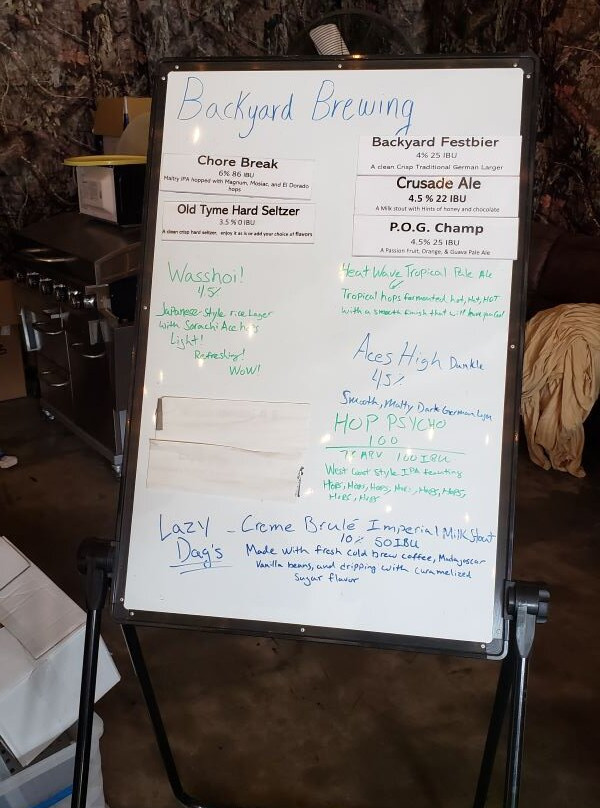 Backyard Brewing
Chore Break
6% 86 IBU
Malty IPA hopped with Magnum, Mosiac, and El Dorado
hops
Old Tyme Hard Seltzer
3.5 % 0 IBU
A clean crisp hard seltzer, enjoy it as is or add your choice of flavors
Wasshoi!
4.5%
Japanese Style rice Lager
with Sorachi Ace hops
Light!
Refreshing!
WOW!
Backyard Festbier
4% 25 IBU
A clean Crisp Traditional German Larger
Crusade Ale
4.5 % 22 IBU
A Milk stout with Hints of honey and chocolate
P.O.G. Champ
4.5% 25 IBU
A Passion Fruit, Orange, & Guava Pale Ale
Heat Wave Tropical Pale Ale
Tropical hops fermented hot, Hot, HOT
with a smooth finish that will have you
Aces High Dunkle
4.5%
Smooth, Malty Dark German Lager
HOP PSYCHO
100
7% ABV 100 IBU
West Coast Style IPA featuring
HOPS, HOPS, HOPS, HOPS, HOPS, HOPS,
HOPS, HOPS
Lazy Dag's - Creme Brulé Imperial Milk Stout
10% 50 IBU
Made with fresh cold brew coffee, Madagascar
Vanilla beans, and dripping with caramelized
Sugar flavor